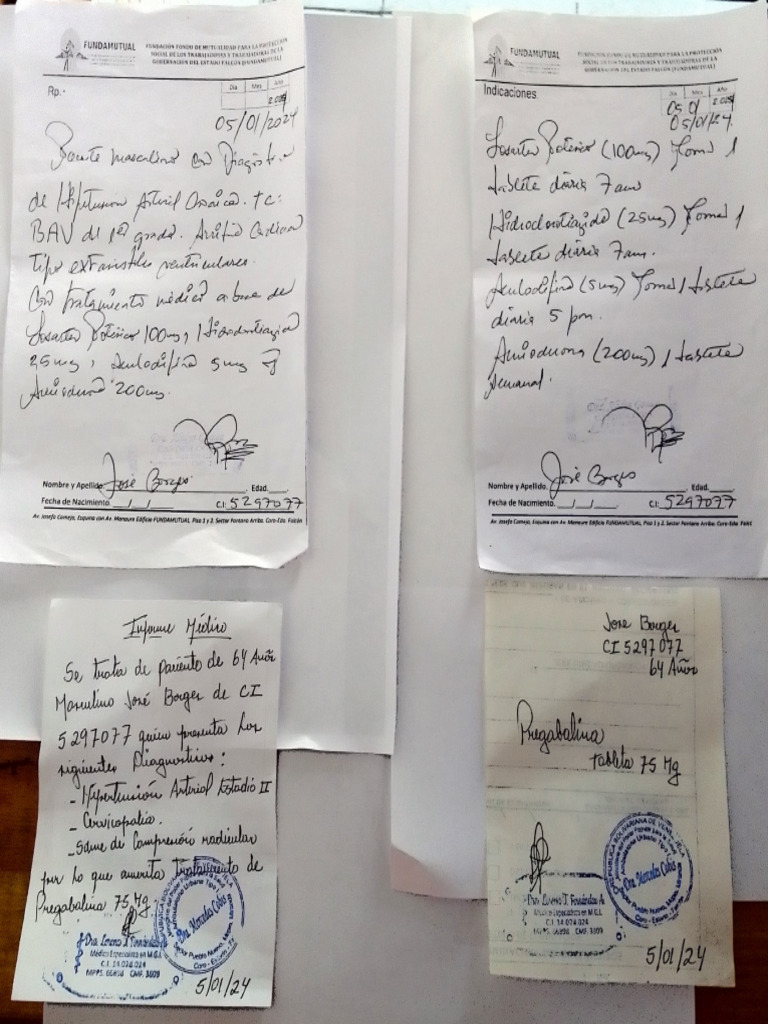 FUNDAMUTUAL
FUNDACIÓN FONDO DE MUTUALIDAD PARA LA PROTECCIÓN
SOCIAL DE LOS TRABAJADORES Y TRABAJADORAS DE LA
GOBERNACIÓN DEL ESTADO FALCÓN (FUNDAMUTUAL)
Rp.-
Dia Mes Año
05/01/2024
Paciente masculino con Diagnóstico
de Hipertension Arterial Crónica. +c:
BAV de 1er grado. Arritmia Cardiaca
tipo extrasístoles ventriculares.
Con tratamiento médico a base de
Losartan Potásico 100mg, Hidroclorotiazida
25mg, Amlodipina 5mg y
Amiodarona 200mg.
Nombre y Apellido José Borges Edad.
Fecha de Nacimiento. / / C.I: 5297077
Av. Josefa Camejo, Esquina con Av. Manaure Edificio FUNDAMUTUAL, Piso 1 y 2. Sector Pantano Arriba. Coro-Edo. Falcón
FUNDAMUTUAL
FUNDACIÓN FONDO DE MUTUALIDAD PARA LA PROTECCIÓN
SOCIAL DE LOS TRABAJADORES Y TRABAJADORAS DE LA
GOBERNACIÓN DEL ESTADO FALCÓN (FUNDAMUTUAL)
Indicaciones
Dia Mes Año
05 01
05/01/24.
Losartan Potásico (100mg) Tomar 1
tableta diaria 7am
Hidroclorotiazida (25mg) Tomar 1
tableta diaria 7am.
Amlodipina (5mg) Tomar 1 tableta
diaria 5 pm.
Amiodarona (200mg) 1 tableta
semanal.
Nombre y Apellido. José Borges Edad.
Fecha de Nacimiento. / / C.I: 5297077
Av. Josefa Camejo, Esquina con Av. Manaure Edificio FUNDAMUTUAL, Piso 1 y 2. Sector Pantano Arriba. Coro-Edo. Falcón
Informe Médico
Se trata de paciente de 64 Años
Masculino José Borges de CI
5297077 quien presenta los
siguientes Diagnosticos:
- Hypertensión Arterial Estadio II
- Cervicopatia.
- Sdme de Compresión radicular
por lo que amerita tratamiento de
Pregabalina 75 Mg.
Médico Especialista en M.G.I.
C.I. 14.024.024
5/01/24
Jose Borges
CI 5297077
64 Años
Pregabalina
tableta 75 Mg
REPÚBLICA BOLIVARIANA DE VENEZUELA
Médico Especialista en M.G.I.
C.I. 14.024.024
5/01/24